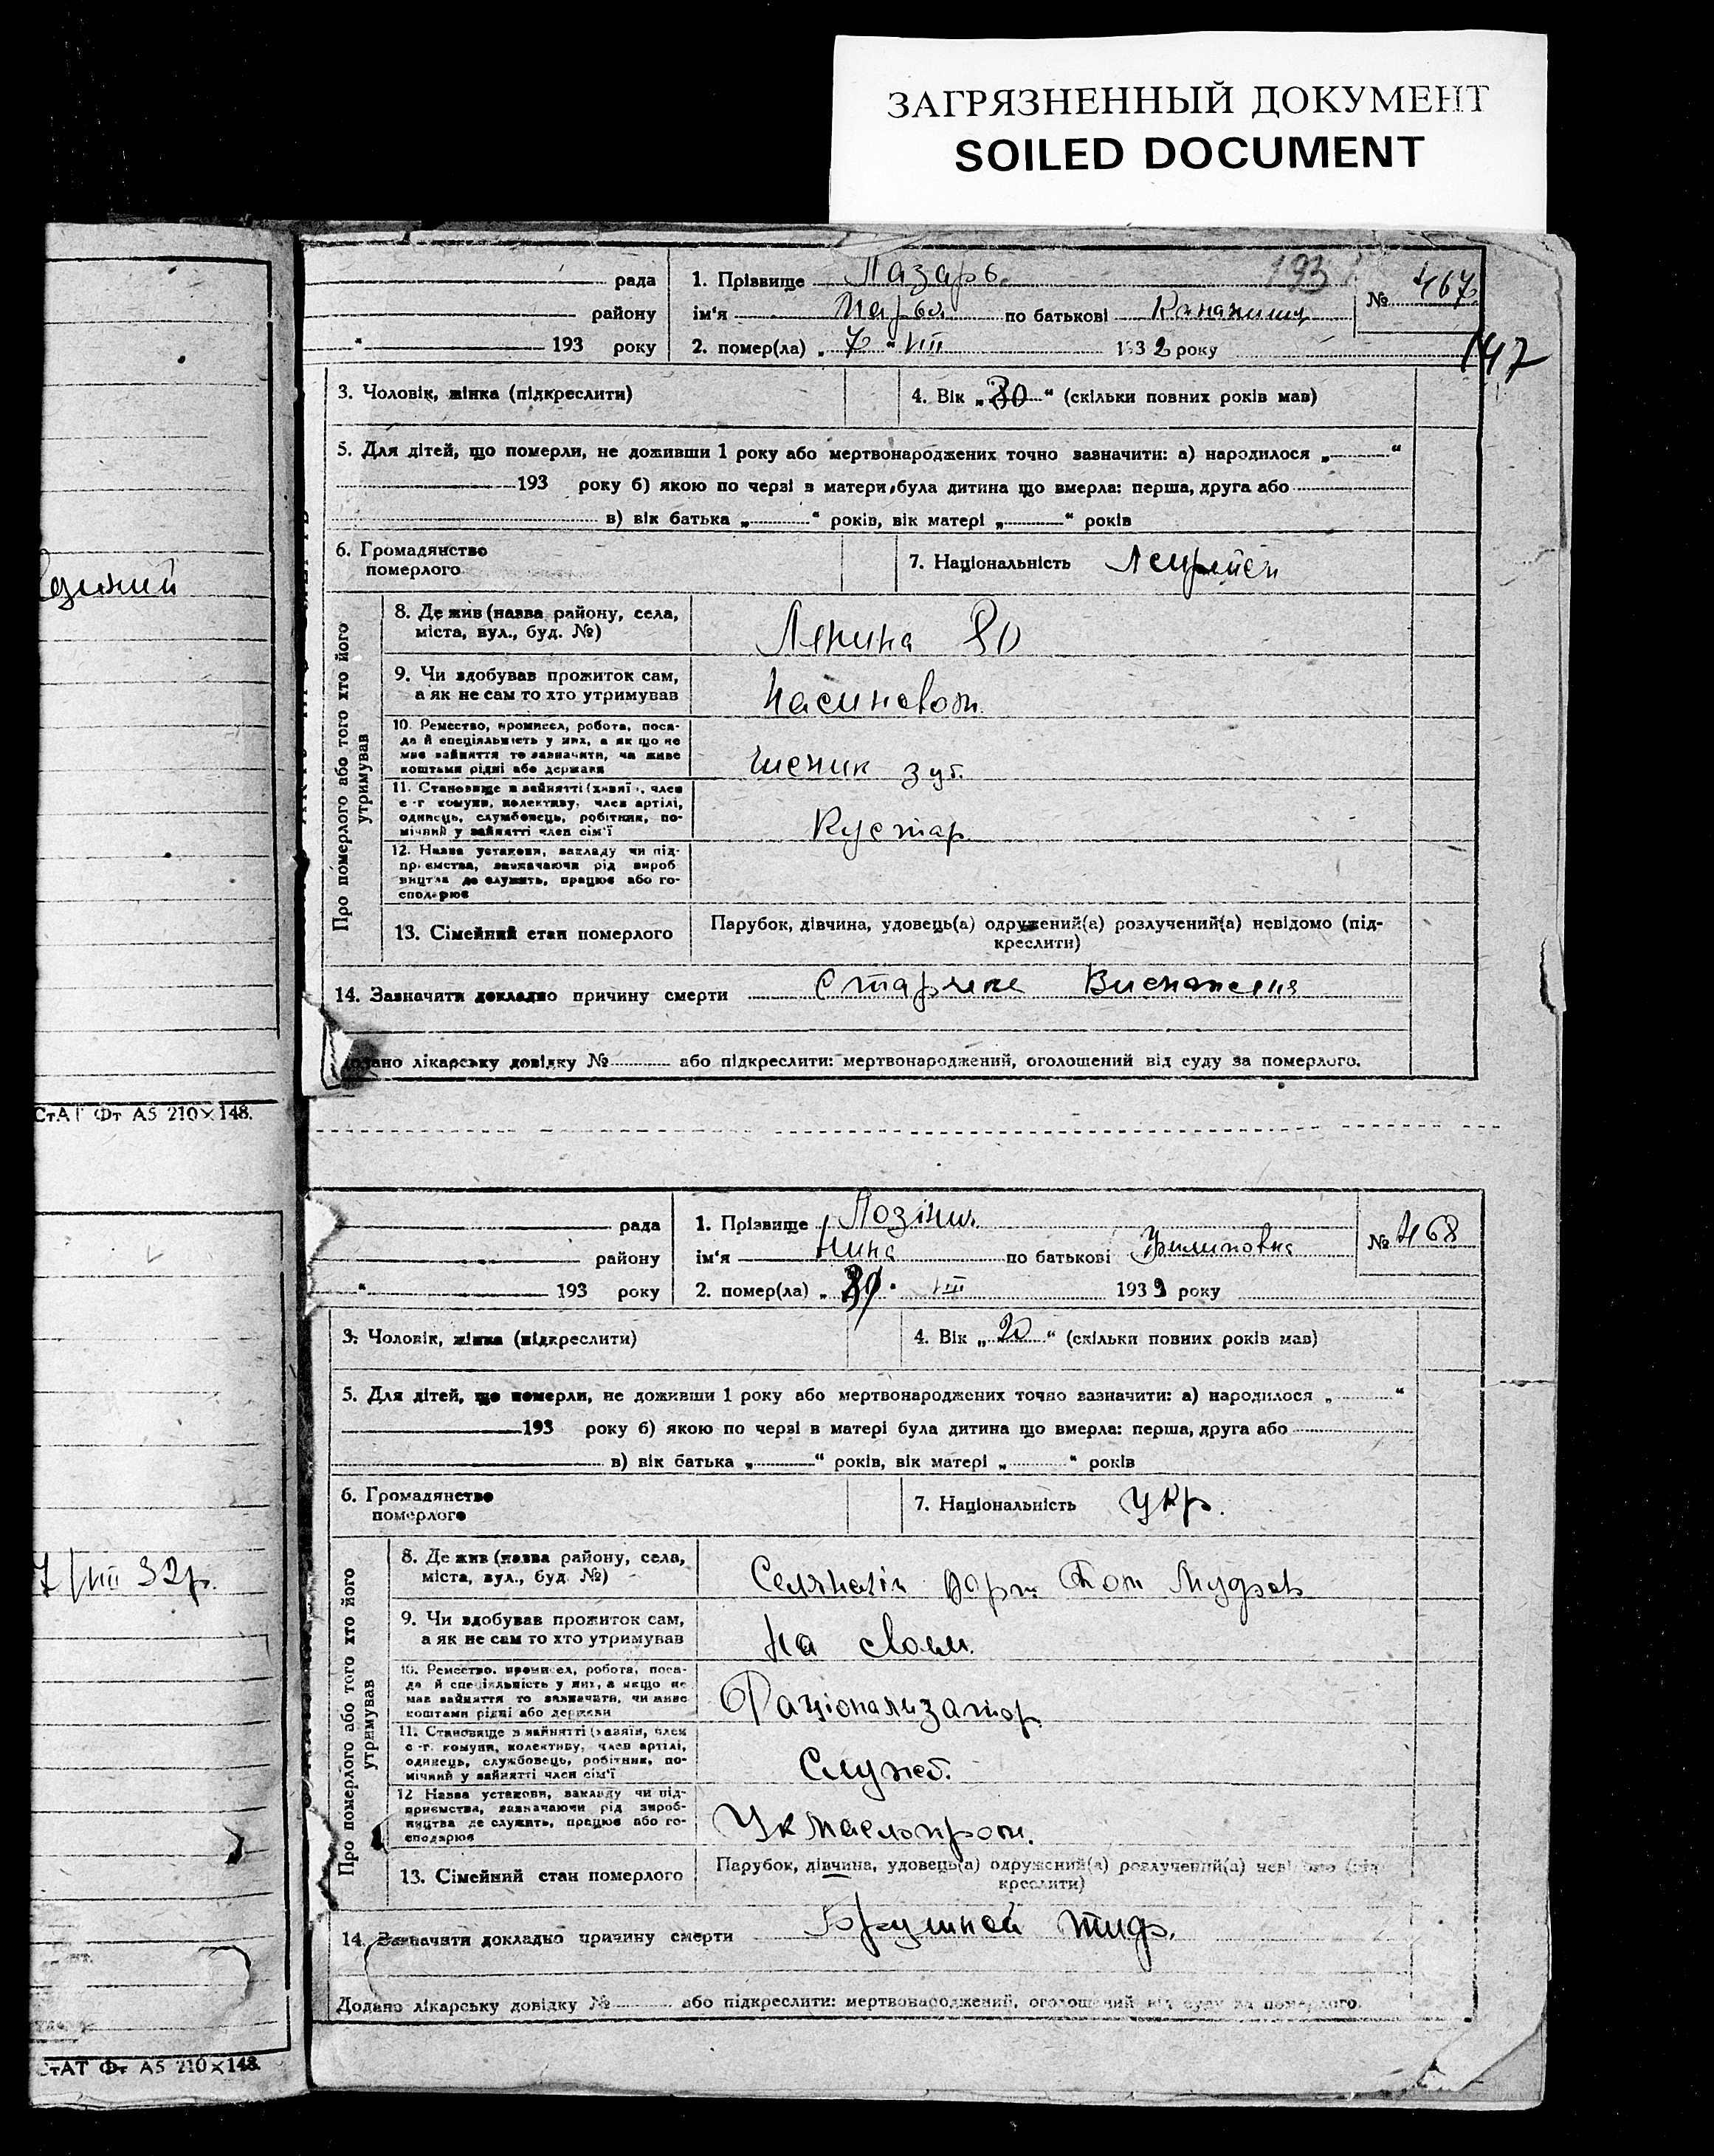 ЗАГРЯЗНЕННЫЙ ДОКУМЕНТ
SOILED DOCUMENT
рада
району
" 193 року
1. Прізвище Лазарь
ім'я по батькові
2. помер(ла) „7" VIII 1932 року
193
№ 467
147
3. Чоловік, жінка (підкреслити)
4. Вік „80" (скільки повних років мав)
5. Для дітей, що померли, не доживши 1 року або мертвонароджених точно зазначити: а) народилося „ "
193 року б) якою по черзі в матери, була дитина що вмерла: перша, друга або
в) вік батька „ " років, вік матері „ " років
6. Громадянство
померлого
7. Національність
Про померлого або того хто його
утримував
8. Де жив (назва району, села,
міста, вул., буд. №)
Ленина 80
9. Чи здобував прожиток сам,
а як не сам то хто утримував
10. Ремество, промисел, робота, поса-
да й спеціяльність у них, а як що не
має зайняття то зазначити, чи живе
коштами рідні або держави
11. Становище в зайнятті (хазяїн, член
с.-г. комуни, колективу, член артілі,
одинець, службовець, робітник, по-
мічний у зайнятті член сім'ї
Кустар
12. Назва установи, закладу чи під-
приємства, зазначаючи рід вироб
ництва де служить, працює або го-
сподарює
13. Сімейний стан померлого
Парубок, дівчина, удовець(а) одружений(а) розлучений(а) невідомо (під-
креслити)
14. Зазначити докладно причину смерти Старече Виснаження
Додано лікарську довідку № або підкреслити: мертвонароджений, оголошений від суду за померлого.
дений
СтАТ Фт А5 210×148.
рада
району
" 193 року
1. Прізвище Лозіна
ім'я Нина по батькові Филиповна
2. помер(ла) „ " VIII 1932 року
№ 468
3. Чоловік, жінка (підкреслити)
4. Вік „20" (скільки повних років мав)
5. Для дітей, що померли, не доживши 1 року або мертвонароджених точно зазначити: а) народилося „ "
193 року б) якою по черзі в матері була дитина що вмерла: перша, друга або
в) вік батька „ " років, вік матері „ " років
6. Громадянство
померлого
7. Національність укр.
Про померлого або того хто його
утримував
8. Де жив (назва району, села,
міста, вул., буд. №)
9. Чи здобував прожиток сам,
а як не сам то хто утримував
На свои
10. Ремество, промисел, робота, поса-
да й спеціяльність у них, а якщо не
має зайняття то зазначити, чи живе
коштами рідні або держави
Раціонализатор
11. Становище в зайнятті (хазяїн, член
с.-г. комуни, колективу, член артілі,
одинець, службовець, робітник, по-
мічний у зайнятті член сім'ї
Служб.
12 Назва установи, закладу чи під-
приємства, зазначаючи рід вироб-
ництва де служить, працює або го-
сподарює
Укмаслопром.
13. Сімейний стан померлого
Парубок, дівчина, удовець(а) одружений(а) розлучений(а) невідомо (під
креслити)
14. Зазначити докладно причину смерти Брушной тиф.
Додано лікарську довідку № або підкреслити: мертвонароджений, оголошений від суду за померлого.
7/VIII 32р.
СтАТ Фт А5 210×148.